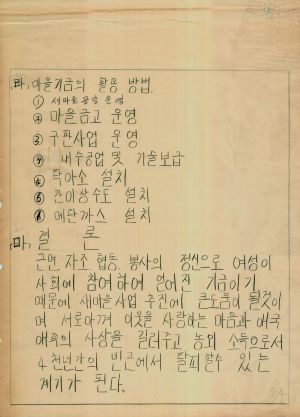 (라) 마을기금의 활용 방법.
① 새마을공장 운영
② 마을금고 운영
③ 구판사업 운영
④ 내수공업 및 기술보급
④ 탁아소 설치
⑤ 간이상수도 설치
⑥ 메탄까스 설치
(마) 결 론
근면, 자조, 협동, 봉사의 정신으로 여성이
사회에 참여하여 얻어진 기금이기
때문에 새마을사업 추진에 큰도움이 될것이
며 서로아껴 이웃을 사랑하는 마음과 애국
애족의 사상을 길러주고 농외 소득으로서
4천년간의 빈곤에서 탈피할수 있는
계기가 된다.